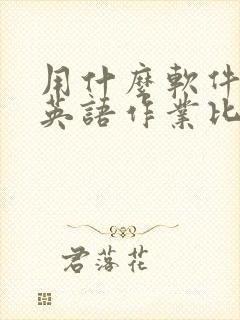 用什麼軟件
英語作業比
君落花